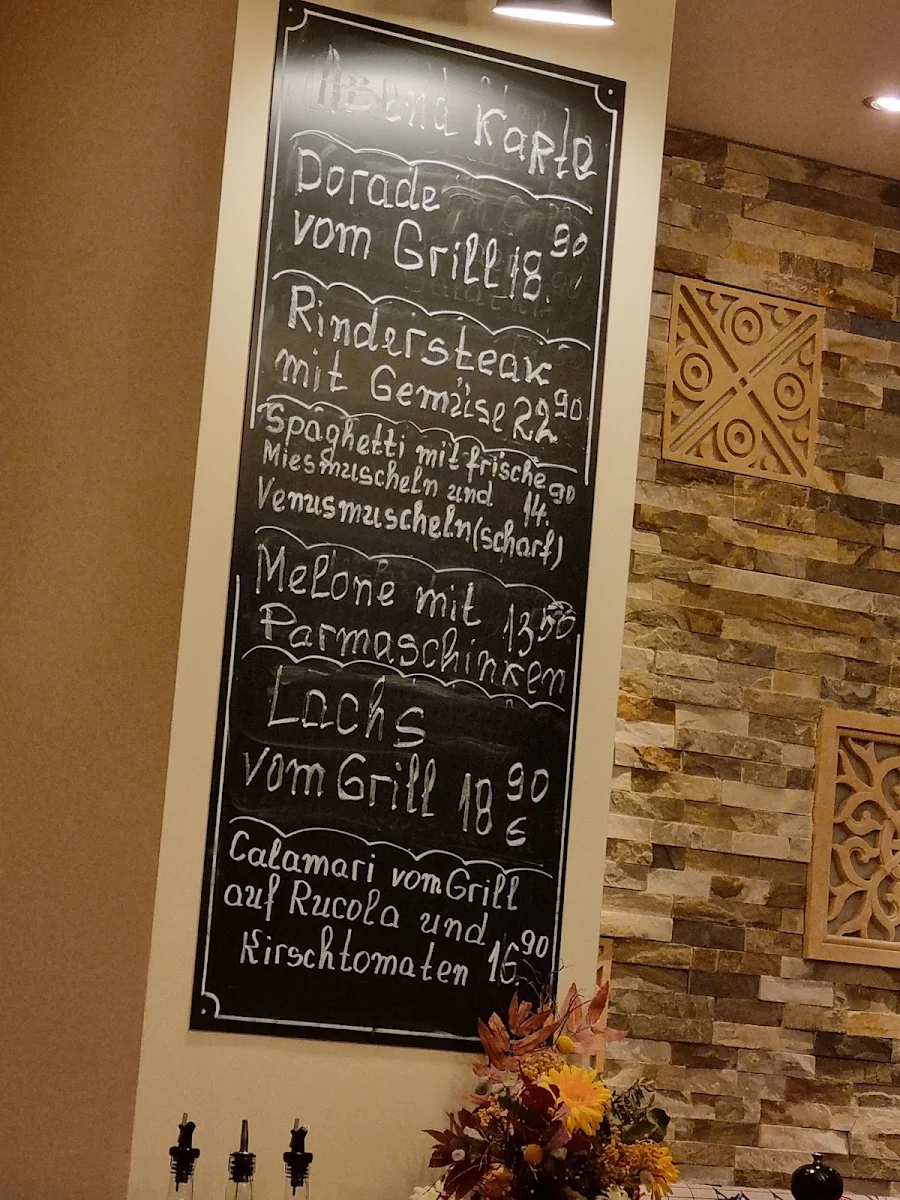 Abend Karte
Dorade
vom Grill 18.90
Rindersteak
mit Gemüse 22.90
Spaghetti mit frische
Miesmuscheln und 14.90
Venusmuscheln (scharf)
Melone mit 13.50
Parmaschinken
Lachs
vom Grill 18 90 €
Calamari vom Grill
auf Rucola und
Kirschtomaten 16.90